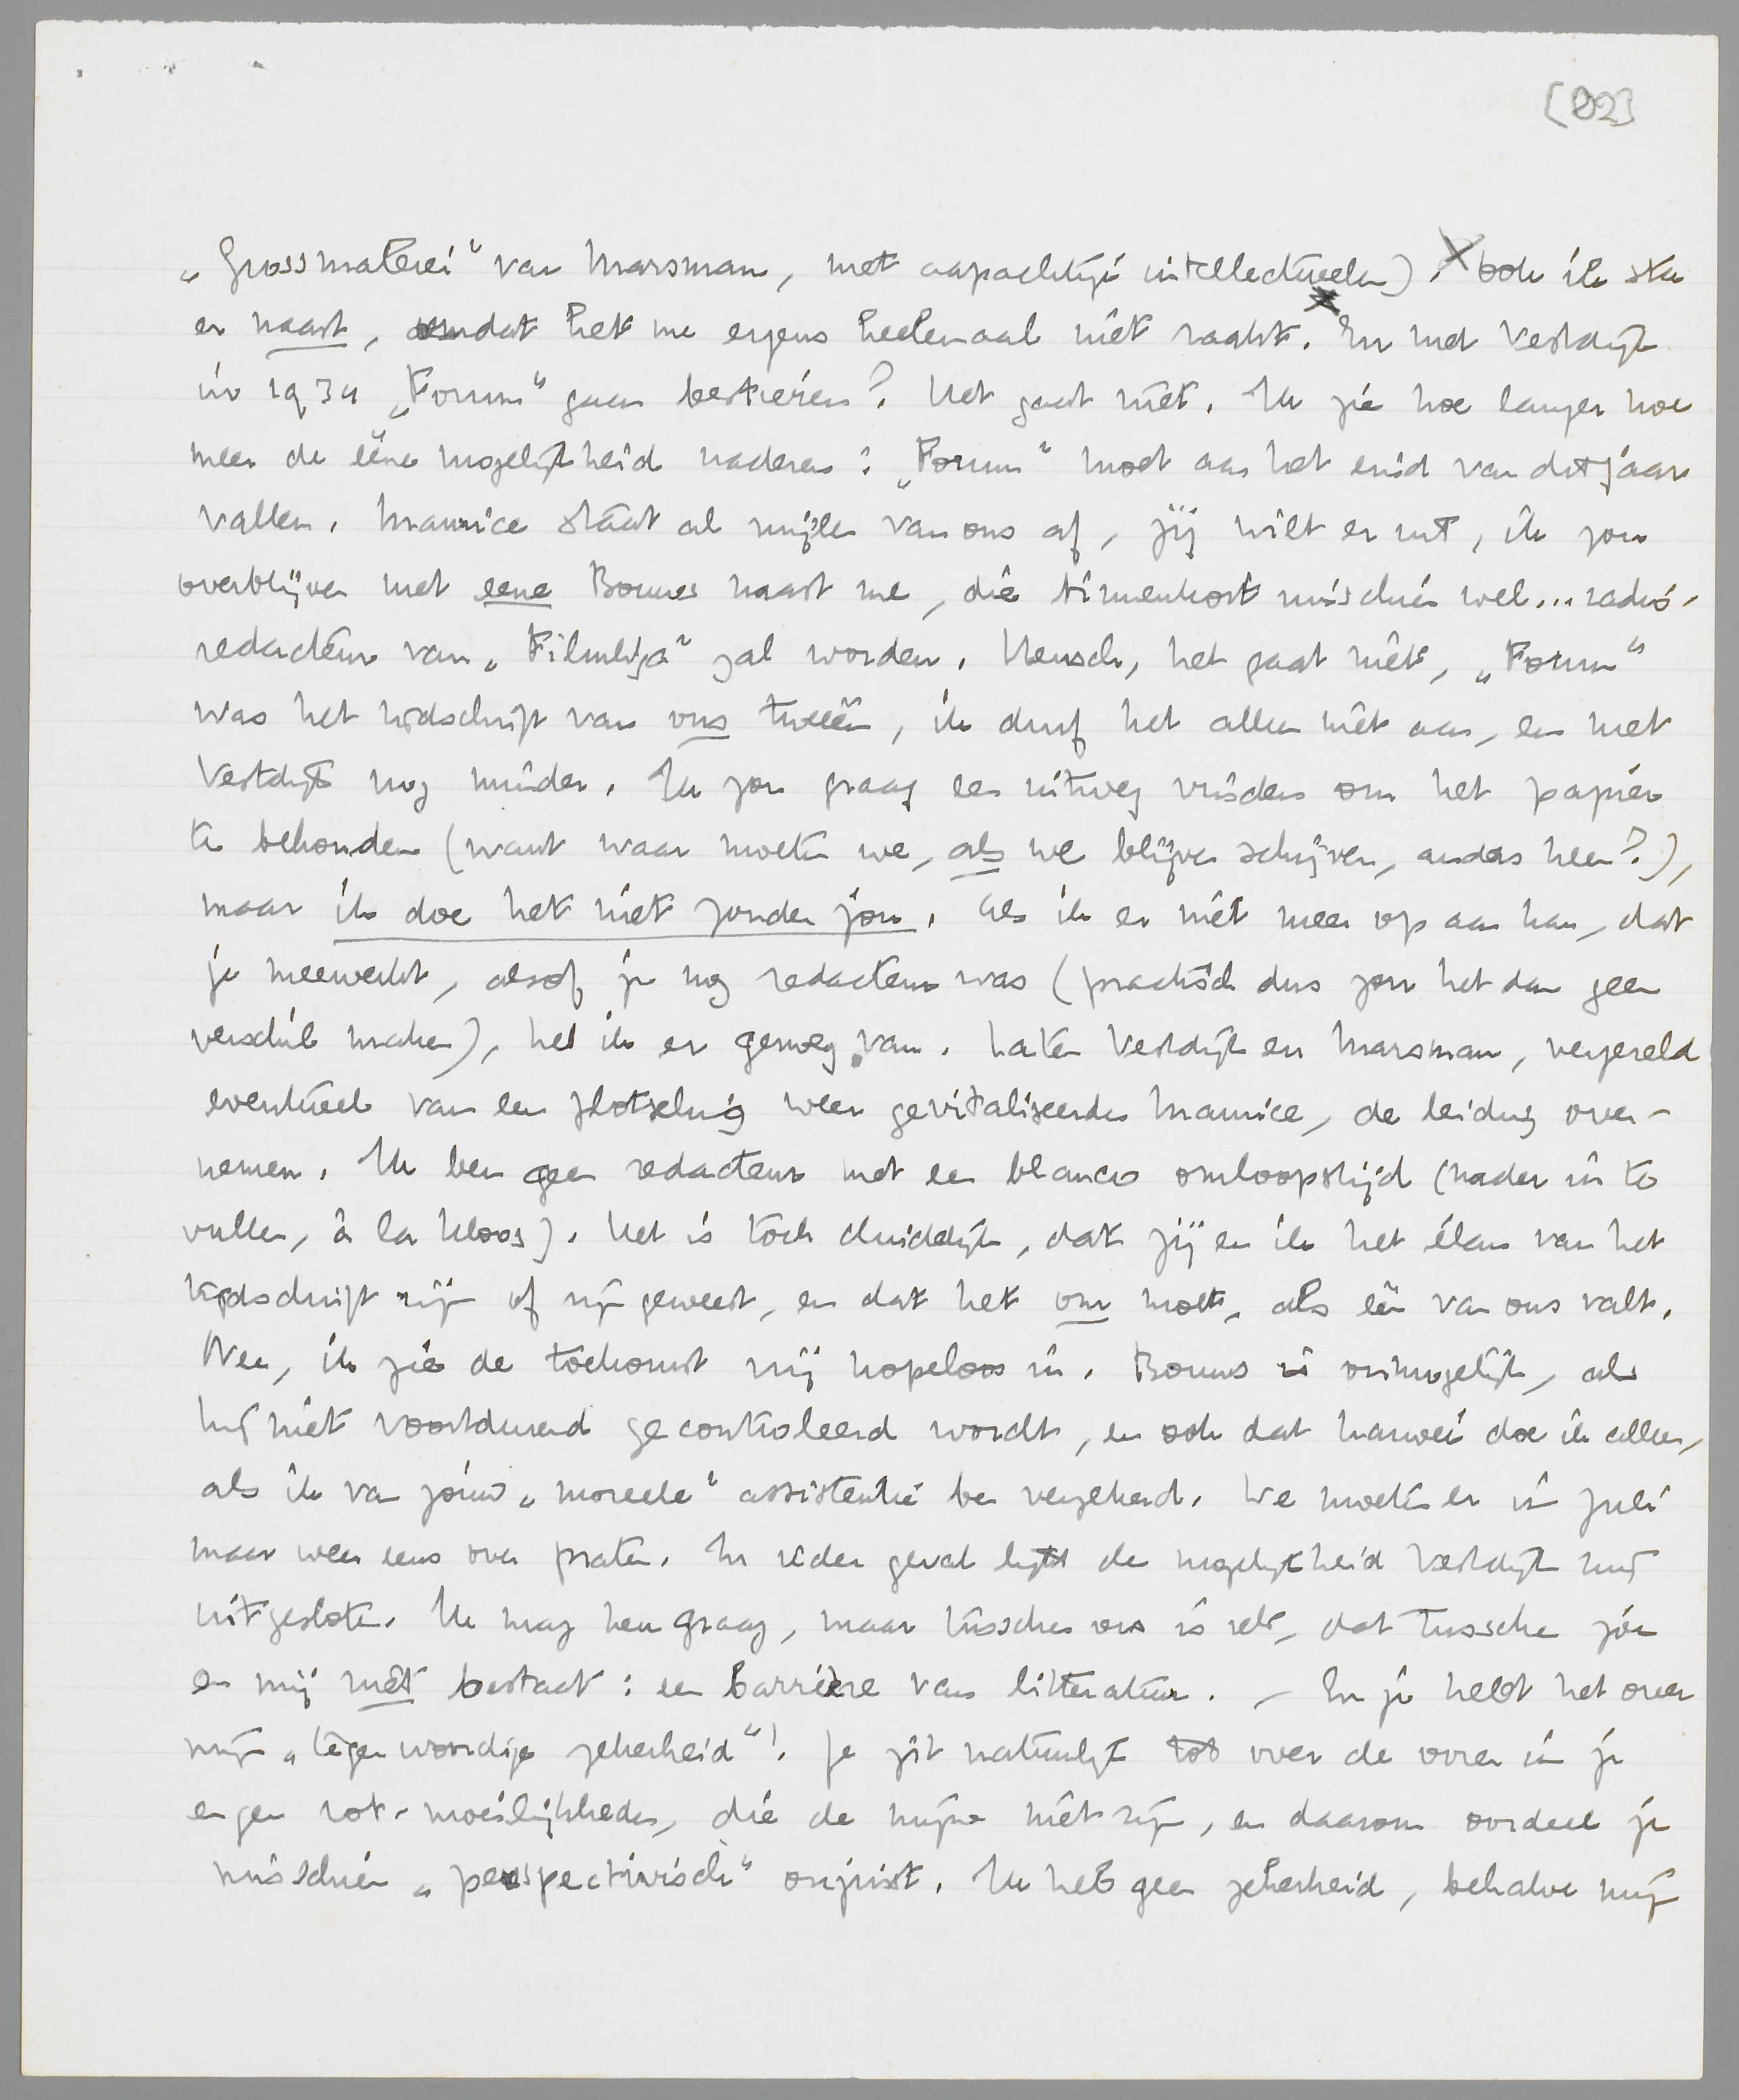 [82]
„Grossmalerei” van Marsman, met aapachtige intellectueelen). Ook ik sta
er naast, omdat het me ergens heelemaal niet raakt. En met Vestdijk
in 1934 „Forum” gaan bestieren? Het gaat niet. Ik zie hoe langer hoe
meer de eene mogelijkheid naderen: „Forum” moet aan het eind van dit jaar
vallen. Maurice staat al mijlen van ons af, jij wilt er uit, ik zou
overblijven met eene Bouws naast me, die binnenkort misschien wel... radio-
redacteur van „Filmliga” zal worden. Mensch, het gaat niet, „Forum”
was het tijdschrift van ons tweeën, ik durf het alleen niet aan, en met
Vestdijk nog minder. Ik zou graag een uitweg vinden om het papier
te behouden (want waar moeten we, als we blijven schrijven, anders heen?),
maar ik doe het niet zonder jou. Als ik er niet meer op aan kan, dat
je meewerkt, alsof je nog redacteur was (practisch dus zou het dan geen
verschil maken), heb ik er genoeg van. Laten Vestdijk en Marsman, vergezeld
eventueel van een plotseling weer gevitaliseerden Maurice, de leiding over-
nemen. Ik ben geen redacteur met een blanco omloopstijd (nader in te
vullen, à la Kloos). Het is toch duidelijk, dat jij en ik het élan van het
tijdschrift zijn of zijn geweest, en dat het om moet, als één van ons valt.
Nee, ik zie de toekomst vrij hopeloos in. Bouws is onmogelijk, als
hij niet voortdurend gecontroleerd wordt, en ook dat karwei doe ik alleen,
als ik van jouw „moreele” assistentie ben verzekerd. We moeten er in Juli
maar weer eens over praten. In ieder geval lijkt de mogelijkheid Vestdijk mij
uitgesloten. Ik mag hem graag, maar tusschen ons is iets, dat tusschen jou
en mij niet bestaat: een barrière van litteratuur. – En je hebt het over
mijn „tegenwoordige zekerheid”! Je zit natuurlijk tot over de ooren in je
eigen rot-moeilijkheden, die de mijne niet zijn, en daarom oordeel je
misschien „perspectivisch” onjuist. Ik heb geen zekerheid, behalve mijn